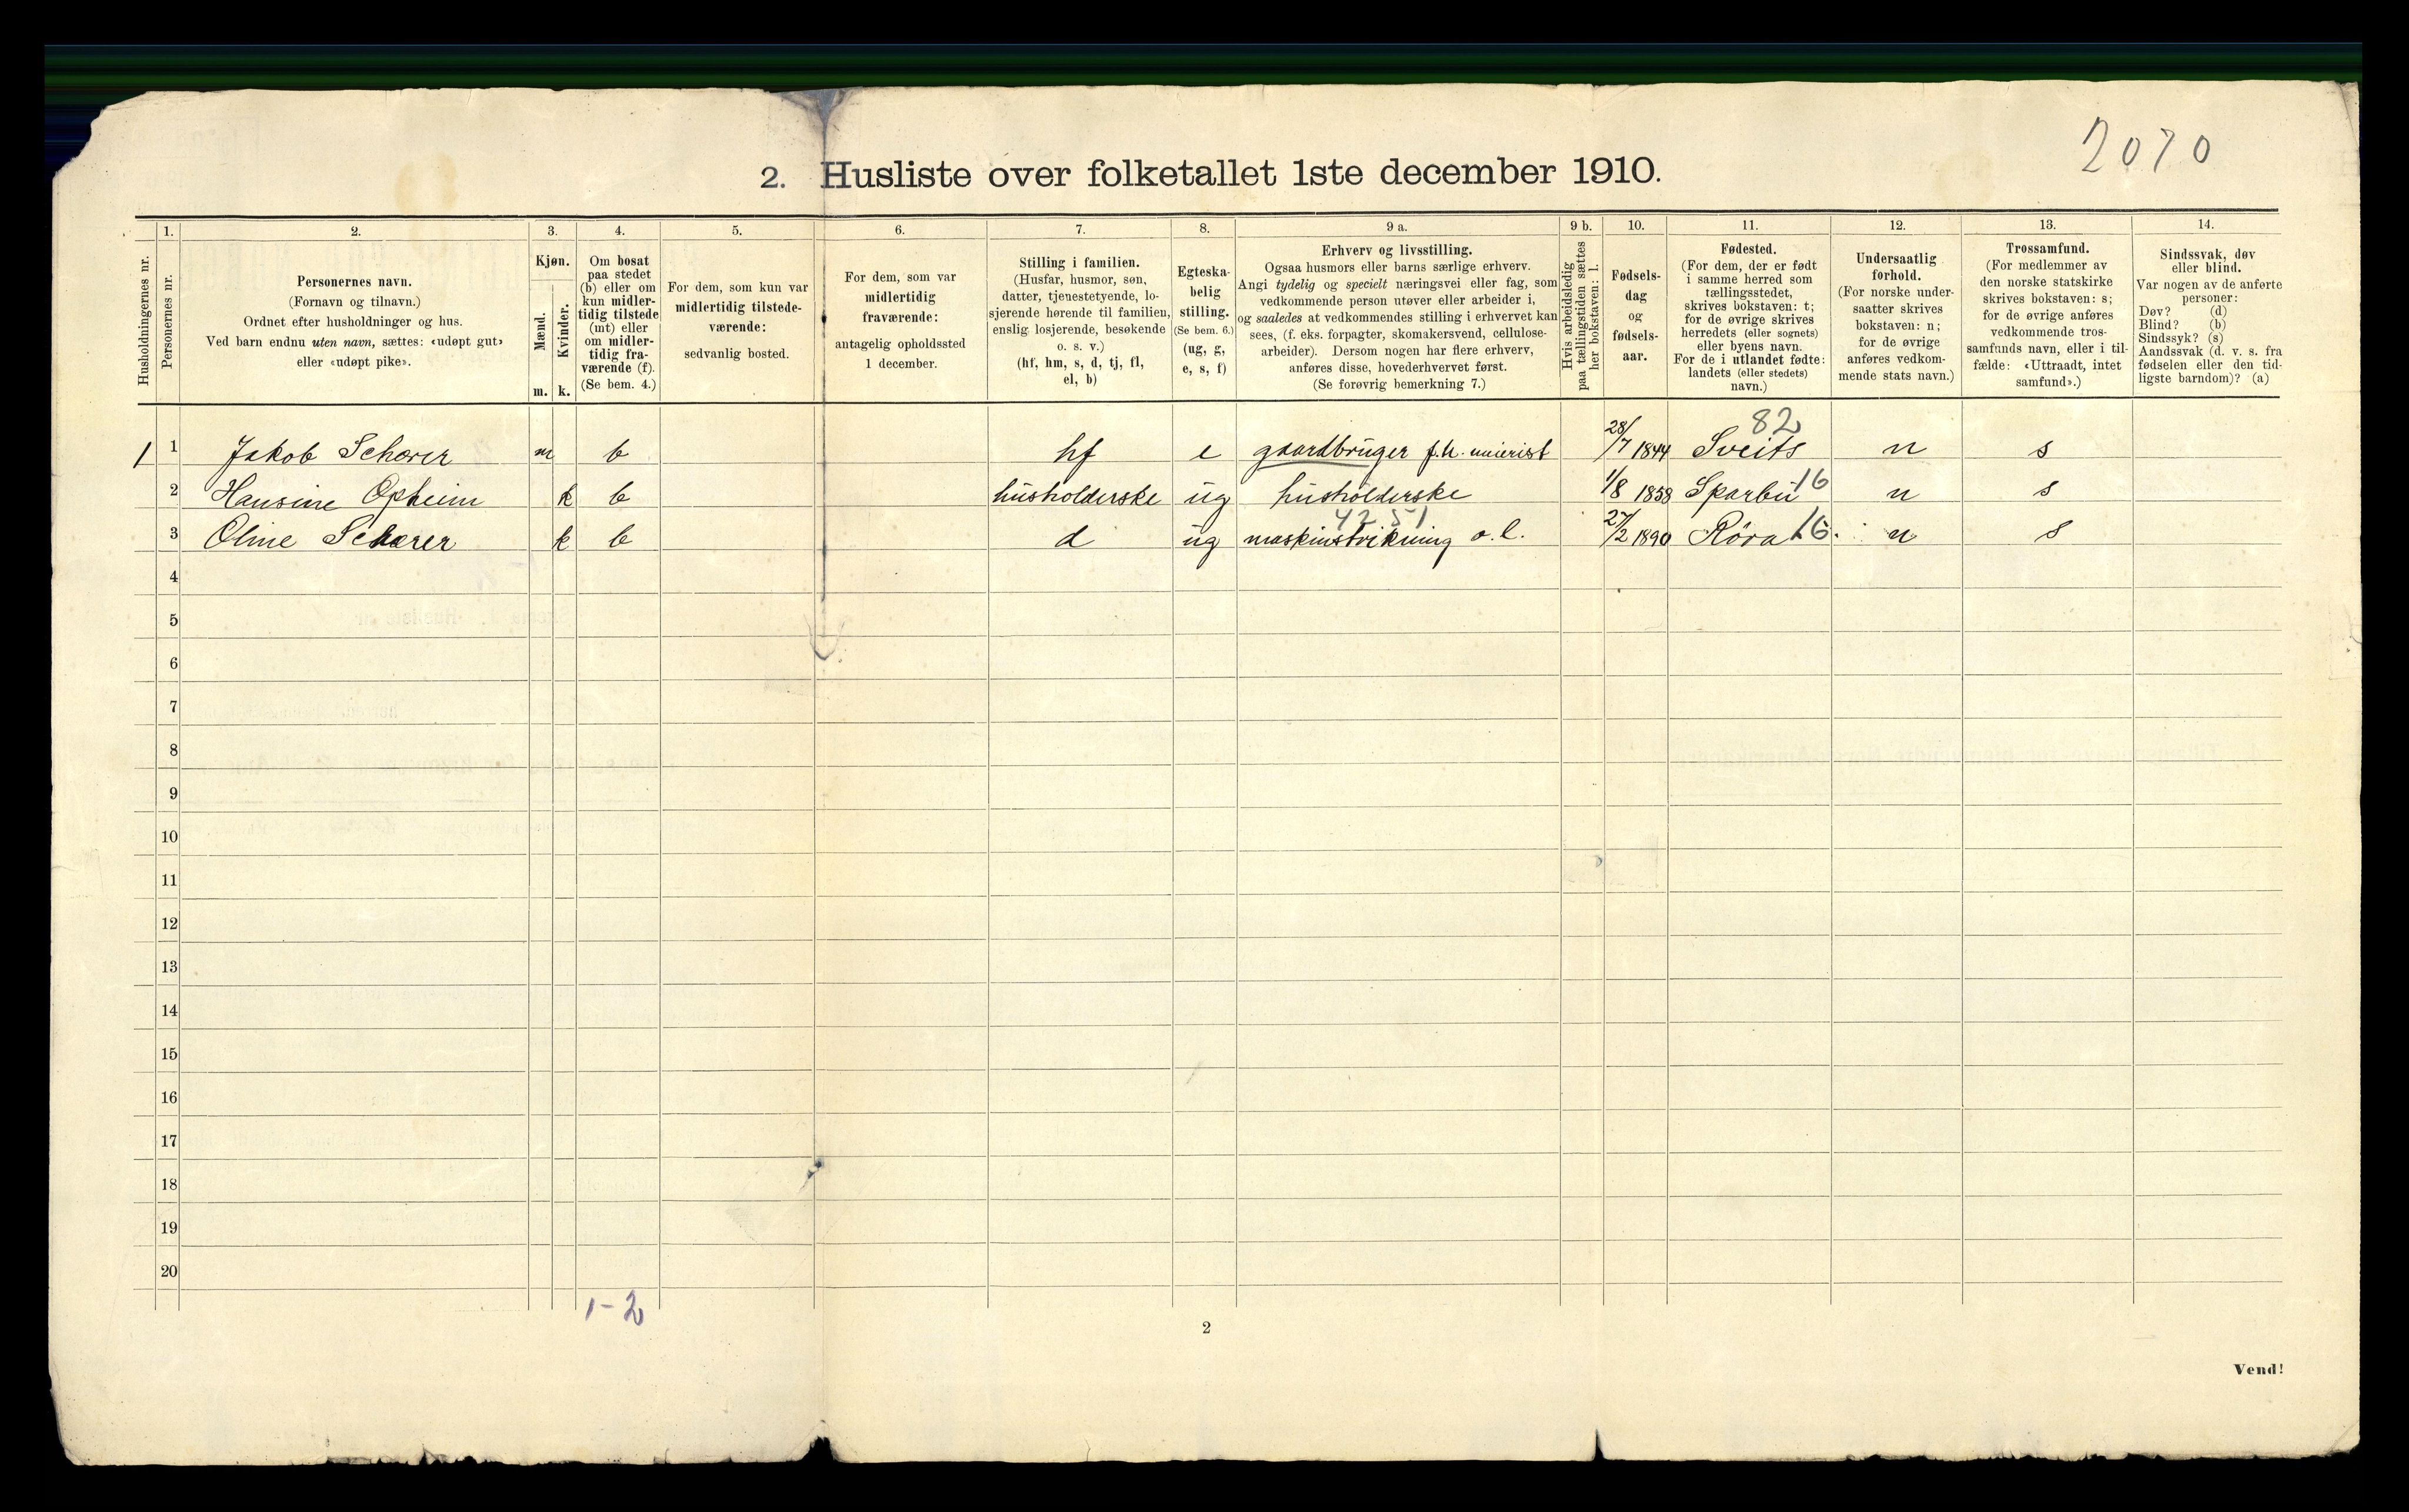 2070
2. Husliste over folketallet 1ste december 1910.
Husholdningernes nr.
1.
Personernes nr.
2.
Personernes navn.
(Fornavn og tilnavn.)
Ordnet efter husholdninger og hus.
Ved barn endnu uten navn, sættes: «udøpt gut»
eller «udøpt pike».
3.
Kjøn.
Mænd.
Kvinder.
m. k.
4.
Om bosat
paa stedet
(b) eller om
kun midler-
tidig tilstede
(mt) eller
om midler-
tidig fra-
værende (f).
(Se bem. 4.)
5.
For dem, som kun var
midlertidig tilstede-
værende:
sedvanlig bosted.
6.
For dem, som var
midlertidig
fraværende:
antagelig opholdssted
1 december.
7.
Stilling i familien.
(Husfar, husmor, søn,
datter, tjenestetyende, lo-
sjerende hørende til familien,
enslig losjerende, besøkende
o. s. v.)
(hf, hm, s, d, tj, fl,
el, b)
8.
Egteska-
belig
stilling.
(Se bem. 6.)
(ug, g,
e, s, f)
9 a.
Erhverv og livsstilling.
Ogsaa husmors eller barns særlige erhverv.
Angi tydelig og specielt næringsvei eller fag, som
vedkommende person utøver eller arbeider i,
og saaledes at vedkommendes stilling i erhvervet kan
sees, (f. eks. forpagter, skomakersvend, cellulose-
arbeider). Dersom nogen har flere erhverv,
anføres disse, hovederhvervet først.
(Se forøvrig bemerkning 7.)
9 b.
Hvis arbeidsledig
paa tællingstiden sættes
her bokstaven: l.
10.
Fødsels-
dag
og
fødsels-
aar.
11.
Fødested.
(For dem, der er født
i samme herred som
tællingsstedet,
skrives bokstaven: t;
for de øvrige skrives
herredets (eller sognets)
eller byens navn.
For de i utlandet fødte:
landets (eller stedets)
navn.)
12.
Undersaatlig
forhold.
(For norske under-
saatter skrives
bokstaven: n;
for de øvrige
anføres vedkom-
mende stats navn.)
13.
Trossamfund.
(For medlemmer av
den norske statskirke
skrives bokstaven: s;
for de øvrige anføres
vedkommende tros-
samfunds navn, eller i til-
fælde: «Uttraadt, intet
samfund».)
14.
Sindssvak, døv
eller blind.
Var nogen av de anførte
personer:
Døv? (d)
Blind? (b)
Sindssyk? (s)
Aandssvak (d. v. s. fra
fødselen eller den tid-
ligste barndom)? (a)
82
1 1 Jakob Schærer m b hf e gaardbruger f.h. meierist 28/7 1844 Sveits n s
2 Hansine Opheim k b husholderske ug husholderske 1/8 1858 Sparbu 16 n s
42 51
3 Oline Schærer k b d ug maskinstrikning o.l. 27/2 1890 Röra 16. n s
4
5
6
7
8
9
10
11
12
13
14
15
16
17
18
19
20
1-2
2
Vend!